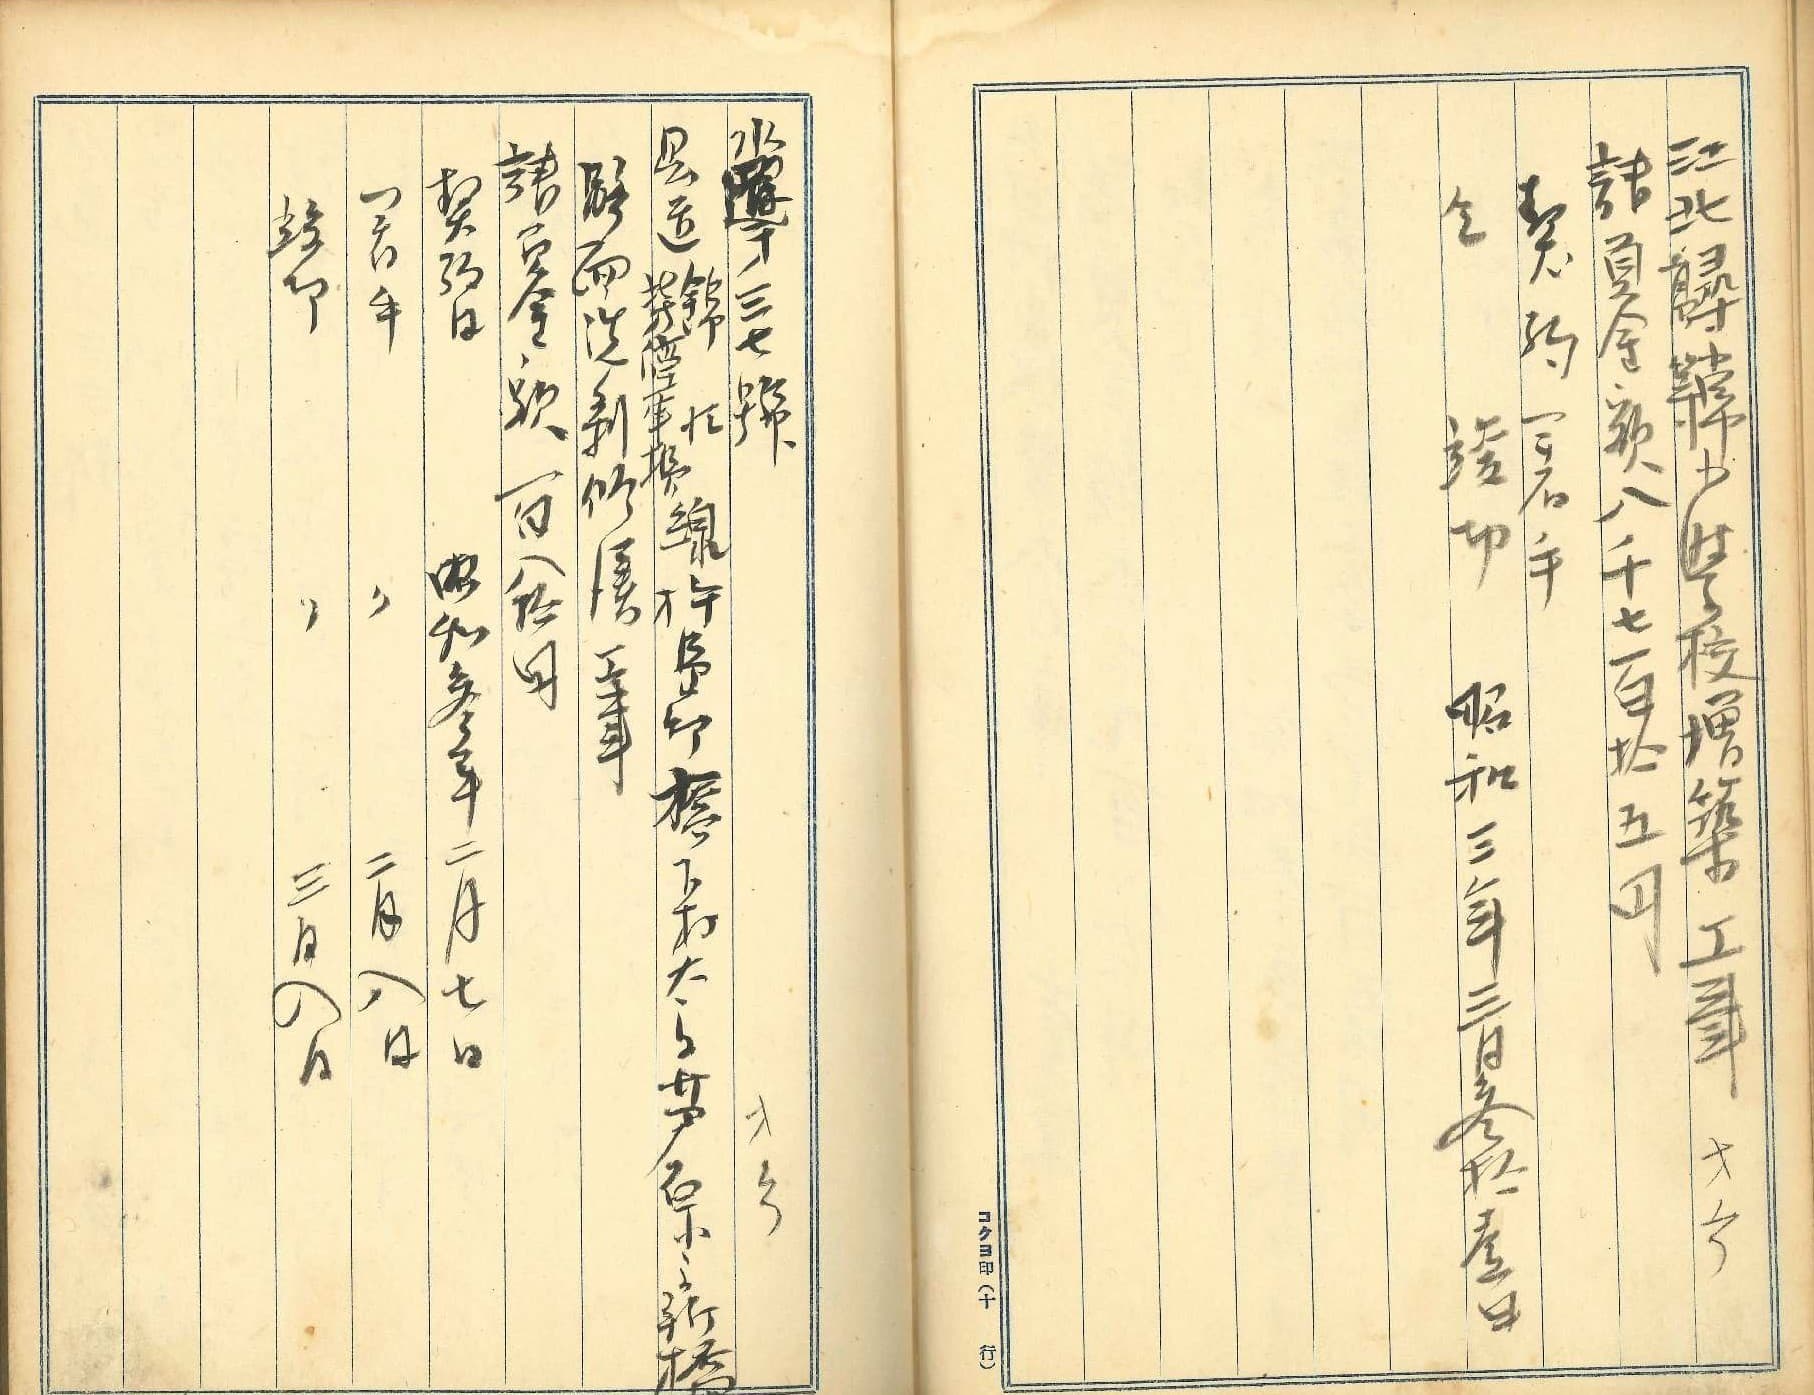 江北尋常小学校増築工事
請負金額八千七百拾五円
契約 着手
仝 竣功 昭和三年三月参拾壱日
コクヨ印(十行)
第三七號
県道 錦江
線杵島郡橋下村大字芦原 新橋
路面洗剥修渡工事
請負金額 一百八拾円
契約日 昭和参年二月七日
着手 〃 二月八日
竣功 〃 三月八日